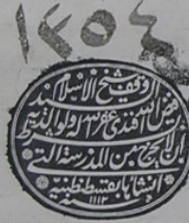 ١٢٥٤
وقف شيخ الاسلام السيد
فيض الله افندي غفر الله له ولوالديه بشرط
ان لا يخرج من المدرسة التي
انشأها بقسطنطنية
سنة ١١١٣